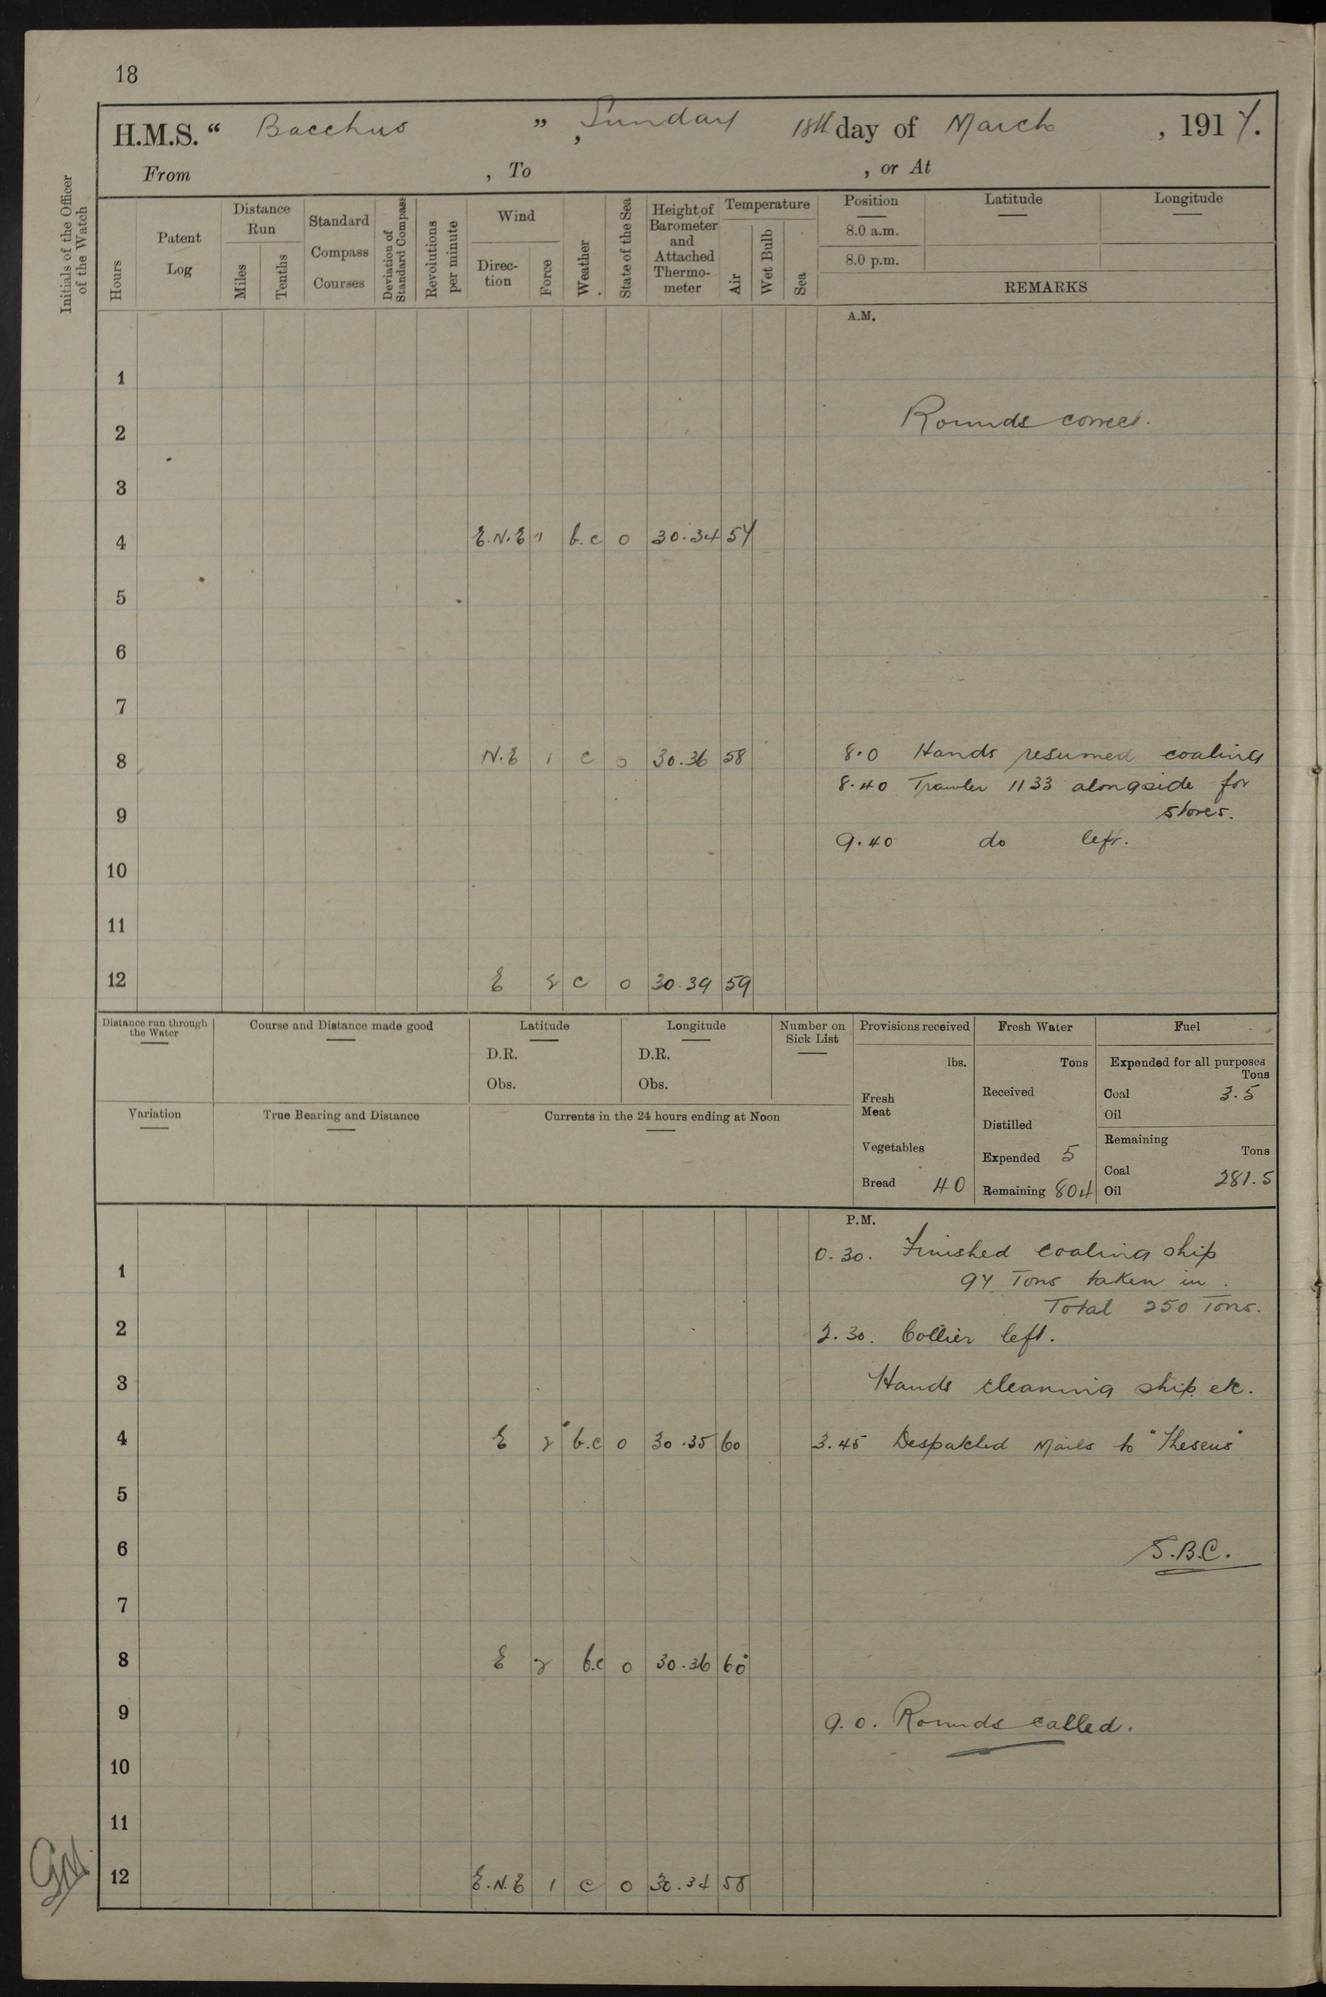 18
H.M.S. “ Bacchus ” , Sunday 18th day of March , 1917.
From , To , or At
Initials of the Officer of the Watch
Hours
Patent Log
Distance Run
Miles
Tenths
Standard Compass Courses
Deviation of Standard Compass
Revolutions per minute
Wind
Direction
Force
Weather
State of the Sea
Height of Barometer and Attached Thermometer
Temperature
Air
Wet Bulb
Sea
Position Latitude Longitude
8.0 a.m.
8.0 p.m.
REMARKS
A.M.
1
2 Rounds correct.
3
4 E.N.E 1 b.c 0 30.34 57
5
6
7
8 N.E 1 c 0 30.36 58 8.0 Hands resumed coaling
8.40 Trawler 1133 alongside for
9 stores.
9.40 do left.
10
11
12 E 2 c 0 30.39 59
Distance run through the Water
Course and Distance made good
Latitude
D.R.
Obs.
Longitude
D.R.
Obs.
Number on Sick List
Provisions received
lbs.
Fresh Meat
Vegetables
Bread 40
Fresh Water
Tons
Received
Distilled
Expended 5
Remaining 804
Fuel
Expended for all purposes
Tons
Coal 3.5
Oil
Remaining
Tons
Coal 281.5
Oil
Variation
True Bearing and Distance
Currents in the 24 hours ending at Noon
P.M.
0.30. Finished coaling ship
1 97 Tons taken in.
Total 250 Tons.
2 2.30. Collier left.
3 Hands cleaning ship etc.
4 E 2 b.c 0 30.35 60 3.45 Despatched Mails to "Theseus"
5
6 S.B.C.
7
8 E 2 b.c 0 30.36 60
9 9.0. Rounds called.
10
11
12 E.N.E 1 c 0 30.34 58